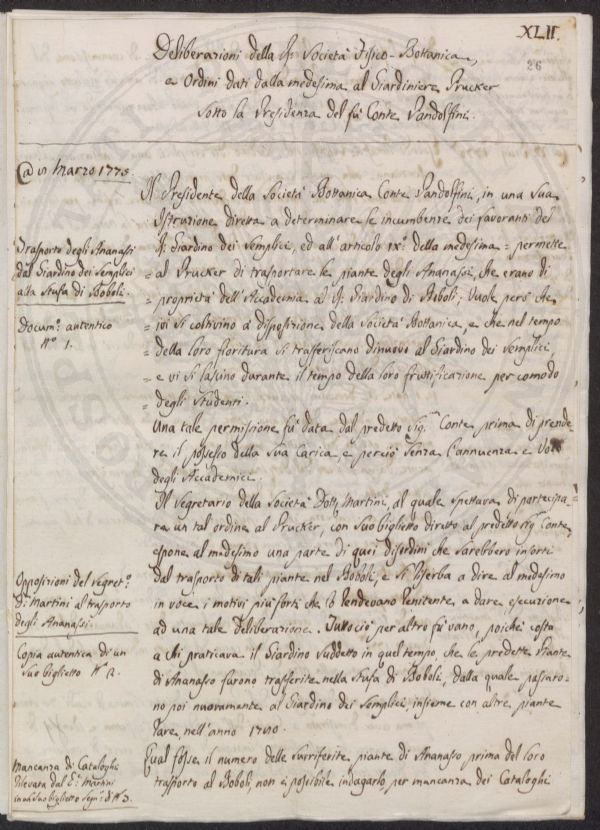 XLII.
26
Deliberazioni della R. Società Fisico-Bottanica,
e Ordini dati dalla medesima al Giardiniere Prucker
Sotto la Presidenza del fù Conte Pandolfini.
Marzo 1775.
Il Presidente della Società Bottanica Conte Pandolfini, in una Sua
Istruzione diretta a determinare le incumbenze dei favoranti del
R. Giardino dei Semplici, ed all'articolo IX.º della medesima = permette
Trasporto degli Ananassi
dal Giardino dei Semplici
alla Stufa di Boboli.
= al Prucker di trasportare le piante degli Ananassi, che erano di
= proprietà dell'Accademia al R. Giardino di Boboli; Vuole però che
Docum.º autentico
Nº 1.
= ivi si coltivino a disposizione della Società Bottanica, e che nel tempo
= della loro fioritura si trasferiscano dinuovo al Giardino dei Semplici,
= e vi si lascino durante il tempo della loro fruttificazione per comodo
= degli Studenti.
Una tale permissione fù data dal predetto Sig.r Conte prima di prende
re il possesso della Sua Carica, e perciò Senza l'annuenza e Voto
degli Accademici.
Il Segretario della Società Dott. Martini, al quale spettava di partecipa-
re un tal ordine al Prucker, con suo biglietto diretto al predetto Sig.r Conte
espone al medesimo una parte di quei disordini che sarebbero insorti
Opposizioni del Segret.º
di Martini al trasporto
degli Ananassi.
dal trasporto di tali piante nel Boboli, e si riserba a dire al medesimo
in voce i motivi più forti che lo rendevano renitente a dare esecuzione
ad una tale Deliberazione. Tuttociò per altro fù vano, poichè costa
Copia autentica di un
Suo biglietto Nº 2.
a chi praticava il Giardino suddetto in quel tempo che le predette Piante
di Ananasso furono trasferite nella Stufa di Boboli, dalla quale passaro-
no poi nuovamente al Giardino dei Semplici, insieme con altre piante
rare, nell'anno 1780.
Mancanza di Cataloghi
rilevata dal S.r Martini
in un suo biglietto Segn.º di Nº 3.
Qual fosse il numero delle surriferite piante di Ananasso prima del loro
trasporto al Boboli, non è possibile indagarlo, per mancanza dei Cataloghi